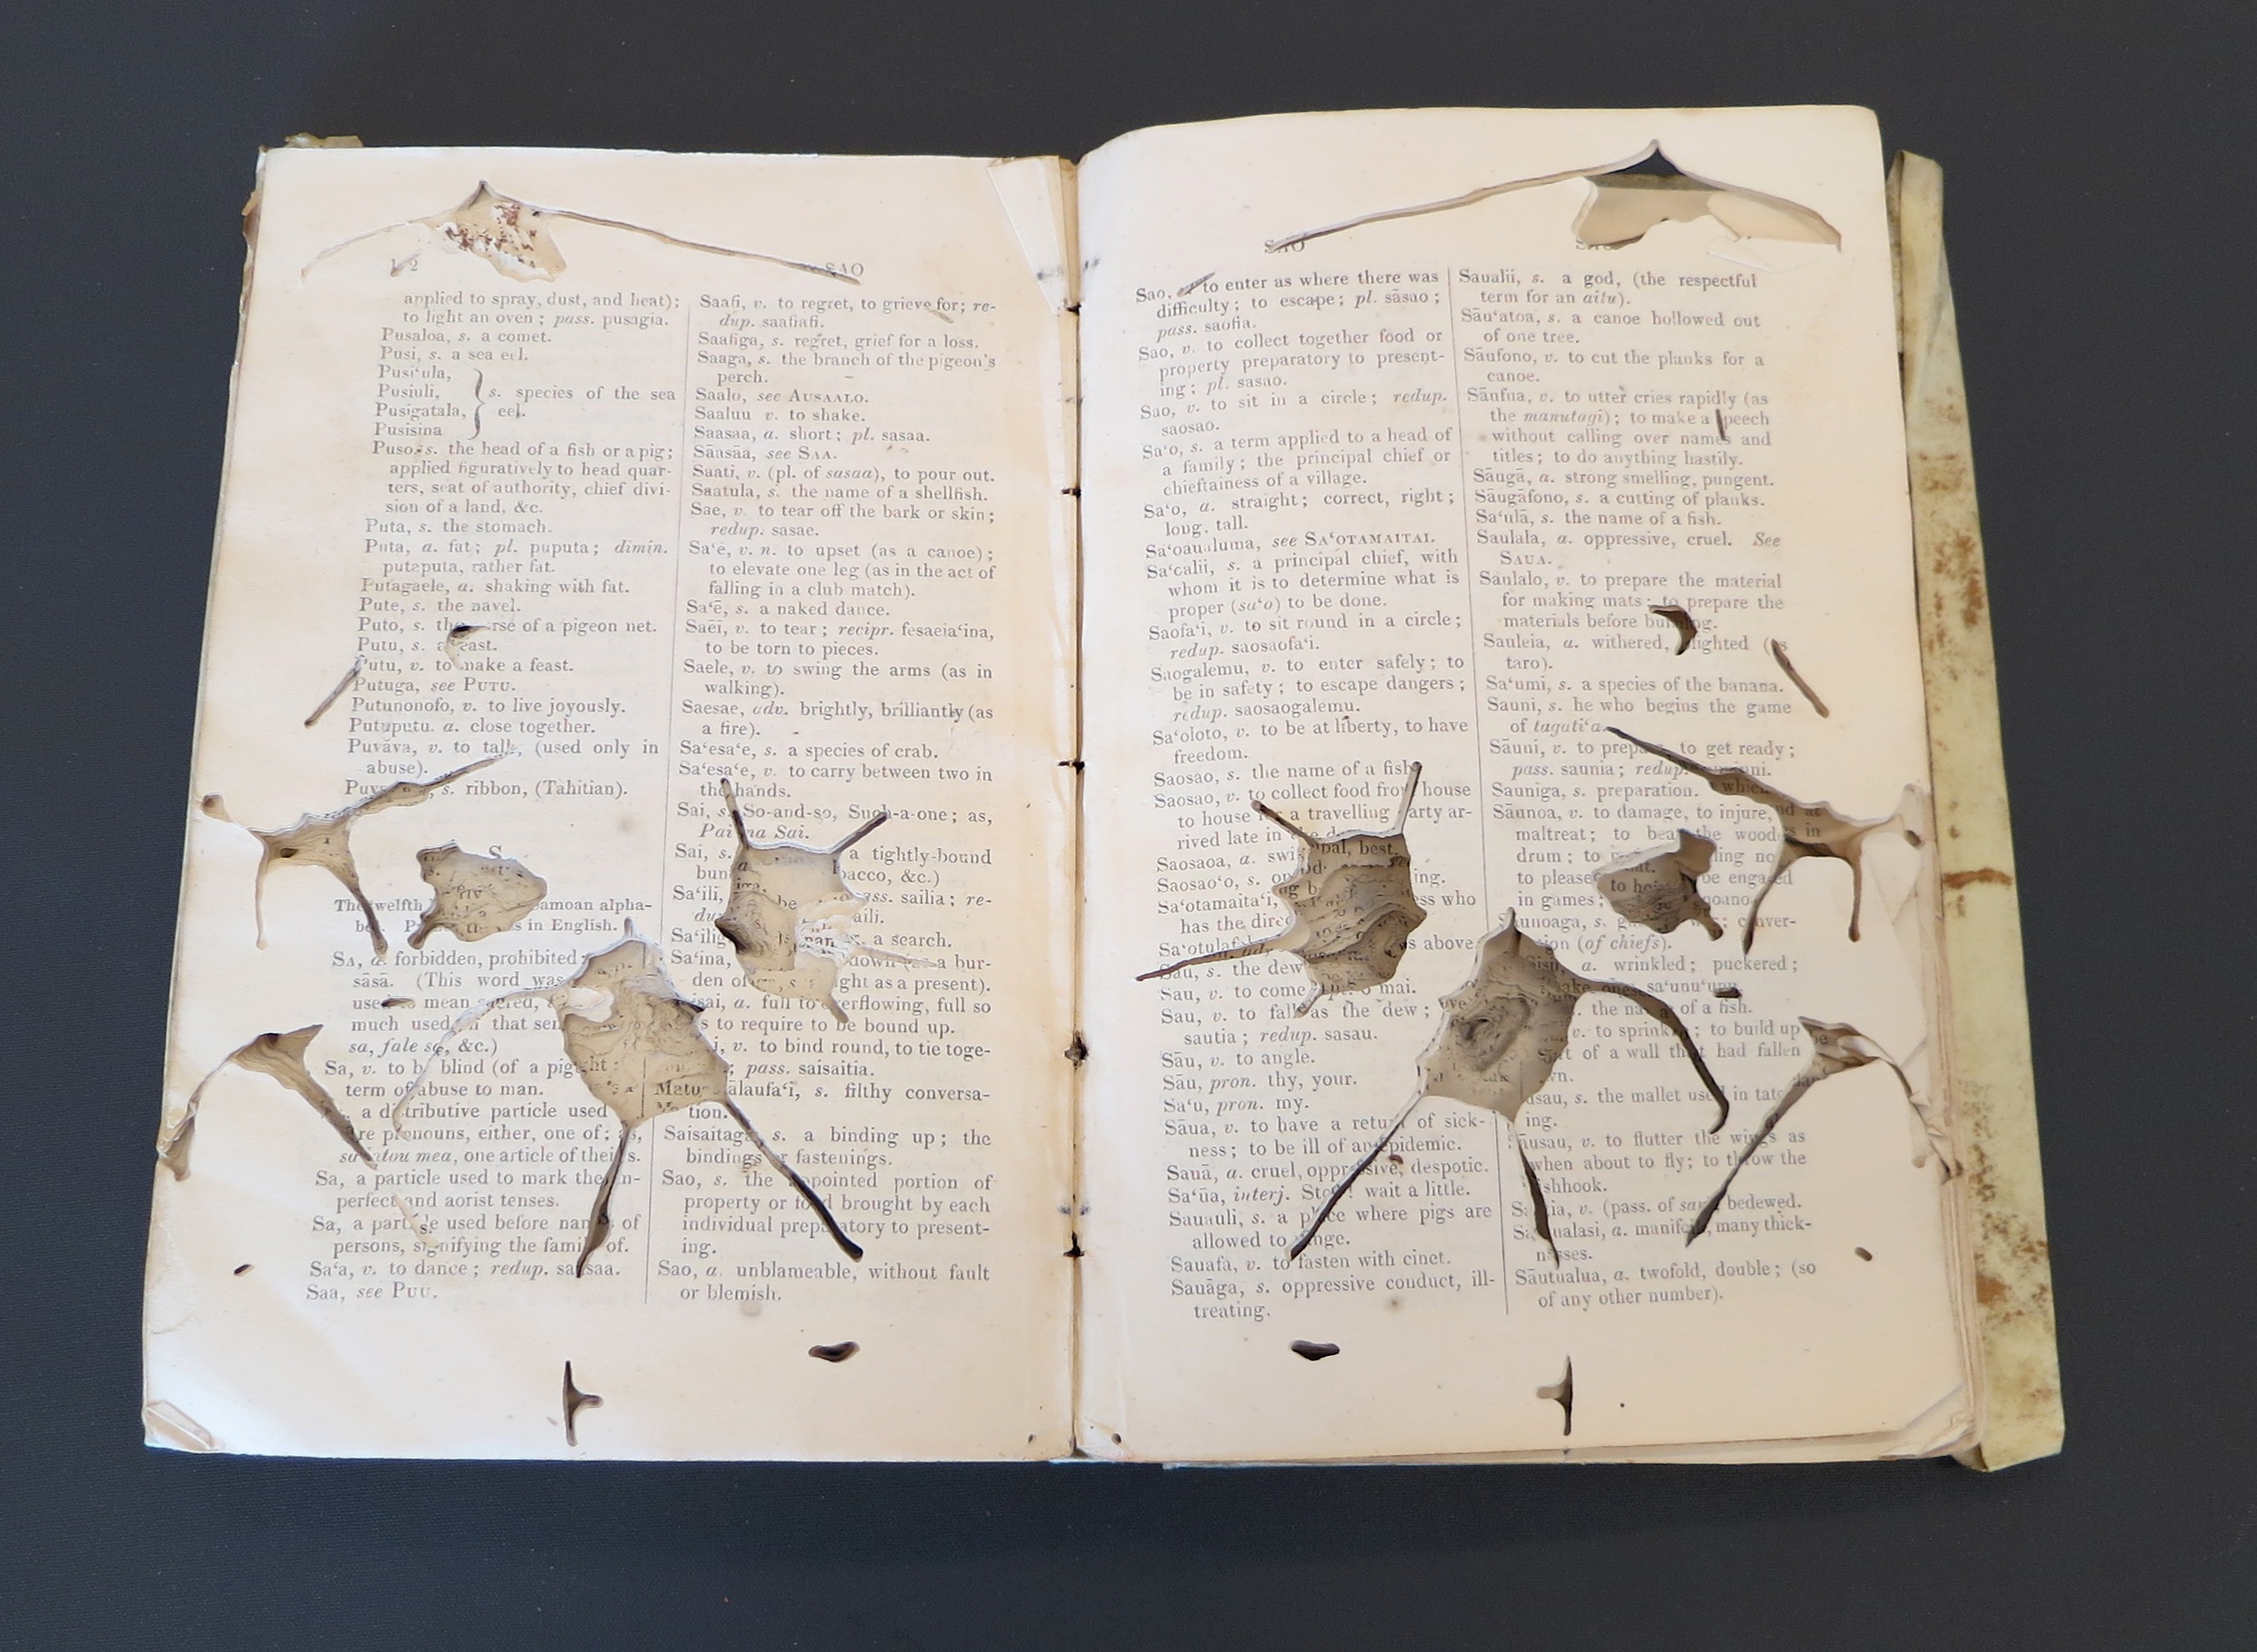 SAO
applied to spray, dust, and heat);
to light an oven; pass. pusagia.
Pusaloa, s. a comet.
Pusi, s. a sea eel.
Pusi‘ula,
Pusiuli,
Pusigatala,
Pusisina
s. species of the sea
eel.
Puso, s. the head of a fish or a pig;
applied figuratively to head quar-
ters, seat of authority, chief divi-
sion of a land, &c.
Puta, s. the stomach.
Puta, a. fat; pl. puputa; dimin.
putaputa, rather fat.
Putagaele, a. shaking with fat.
Pute, s. the navel.
Puto, s. the rse of a pigeon net.
Putu, s. a feast.
Putu, v. to make a feast.
Putuga, see PUTU.
Putunonofo, v. to live joyously.
Putuputu. a. close together.
Puvāvā, v. to talk, (used only in
abuse).
s. ribbon, (Tahitian).
S.
The twelfth Samoan alpha-
s in English.
SA, a. forbidden, prohibited;
sāsā. (This word was
used to mean sacred,
much used in that sen
sa, fale sa, &c.)
Sa, v. to be blind (of a pig
term of abuse to man.
a distributive particle used
are pronouns, either, one of; as,
sa latou mea, one article of theirs.
Sa, a particle used to mark the in-
perfect and aorist tenses.
Sa, a particle used before names of
persons, signifying the family of.
Sa‘a, v. to dance; redup. sasaa.
Saa, see PUU.
Saafi, v. to regret, to grieve for; re-
dup. saafiafi.
Saafiga, s. regret, grief for a loss.
Saaga, s. the branch of the pigeon's
perch.
Saalo, see AUSAALO.
Saaluu v. to shake.
Saasaa, a. short; pl. sasaa.
Sāasāa, see SAA.
Saati, v. (pl. of sasaa), to pour out.
Saatula, s. the name of a shellfish.
Sae, v. to tear off the bark or skin;
redup. sasae.
Sa‘e, v. n. to upset (as a canoe);
to elevate one leg (as in the act of
falling in a club match).
Sa‘ē, s. a naked dance.
Saēī, v. to tear; recipr. fesaeia‘ina,
to be torn to pieces.
Saele, v. to swing the arms (as in
walking).
Saesae, adv. brightly, brilliantly (as
a fire).
Sa‘esa‘e, s. a species of crab.
Sa‘esa‘e, v. to carry between two in
the hands.
Sai, s. So-and-so, Such-a-one; as,
Pai ma Sai.
Sai, s. a tightly-bound
bun bacco, &c.)
Sa‘ili, pass. sailia; re-
du aili.
Sa‘ilig a search.
Sa‘ina, down (as a bur-
den of ght as a present).
sai, a. full to overflowing, full so
s to require to be bound up.
i, v. to bind round, to tie toge-
; pass. saisaitia.
ālaufa‘i, s. filthy conversa-
tion.
Saisaitaga, s. a binding up; the
bindings or fastenings.
Sao, s. the appointed portion of
property or food brought by each
individual preparatory to present-
ing.
Sao, a. unblameable, without fault
or blemish.
SAO
Sao, v. to enter as where there was
difficulty; to escape; pl. sāsao;
pass. saofia.
Sao, v. to collect together food or
property preparatory to present-
ing; pl. sasao.
Sao, v. to sit in a circle; redup.
saosao.
Sa‘o, s. a term applied to a head of
a family; the principal chief or
chieftainess of a village.
Sa‘o, a. straight; correct, right;
long, tall.
Sa‘oaualuma, see SA‘OTAMAITAI.
Sa‘oalii, s. a principal chief, with
whom it is to determine what is
proper (sa‘o) to be done.
Saofa‘i, v. to sit round in a circle;
redup. saosaofa‘i.
Saogalemu, v. to enter safely; to
be in safety; to escape dangers;
redup. saosaogalemu.
Sa‘oloto, v. to be at liberty, to have
freedom.
Saosao, s. the name of a fish.
Saosao, v. to collect food from house
to house for a travelling party ar-
rived late in the
Saosaoa, a. swi
Saosao‘o, s. on ing.
Sa‘otamaita‘i, ess who
has the direc
Sa‘otulafale, s above
Sau, s. the dew
Sau, v. to come mai.
Sau, v. to fall as the dew;
sautia; redup. sasau.
Sāu, v. to angle.
Sāu, pron. thy, your.
Sa‘u, pron. my.
Sāua, v. to have a return of sick-
ness; to be ill of an epidemic.
Sauā, a. cruel, oppressive, despotic.
Sa‘ūa, interj. Stop! wait a little.
Sauauli, s. a place where pigs are
allowed to range.
Sauafa, v. to fasten with cinet.
Sauāga, s. oppressive conduct, ill-
treating.
Saualii, s. a god, (the respectful
term for an aitu).
Sāu‘atoa, s. a canoe hollowed out
of one tree.
Sāufono, v. to cut the planks for a
canoe.
Sāufua, v. to utter cries rapidly (as
the manutagi); to make a speech
without calling over names and
titles; to do anything hastily.
Sāugā, a. strong smelling, pungent.
Sāugāfono, s. a cutting of planks.
Sa‘ulā, s. the name of a fish.
Saulala, a. oppressive, cruel. See
SAUA.
Saulalo, v. to prepare the material
for making mats; to prepare the
materials before building.
Sauleia, a. withered, blighted (as
taro).
Sa‘umi, s. a species of the banana.
Sauni, s. he who begins the game
of tagati‘a.
Sāuni, v. to prepare, to get ready;
pass. saunia; redup. sauniuni.
Sauniga, s. preparation.
Sāunoa, v. to damage, to injure,
maltreat; to beat the wooden
drum; to
to please be engaged
in games;
Saunoaga, s. conver-
sation (of chiefs).
a. wrinkled; puckered;
sa‘unu‘unu
the name of a fish.
v. to sprinkle; to build up
part of a wall that had fallen
down.
Sausau, s. the mallet used in tatoo-
ing.
Sausau, v. to flutter the wings as
when about to fly; to throw the
fishhook.
Sautia, v. (pass. of sau) bedewed.
Sautualasi, a. manifold, many thick-
nesses.
Sāutualua, a. twofold, double; (so
of any other number).